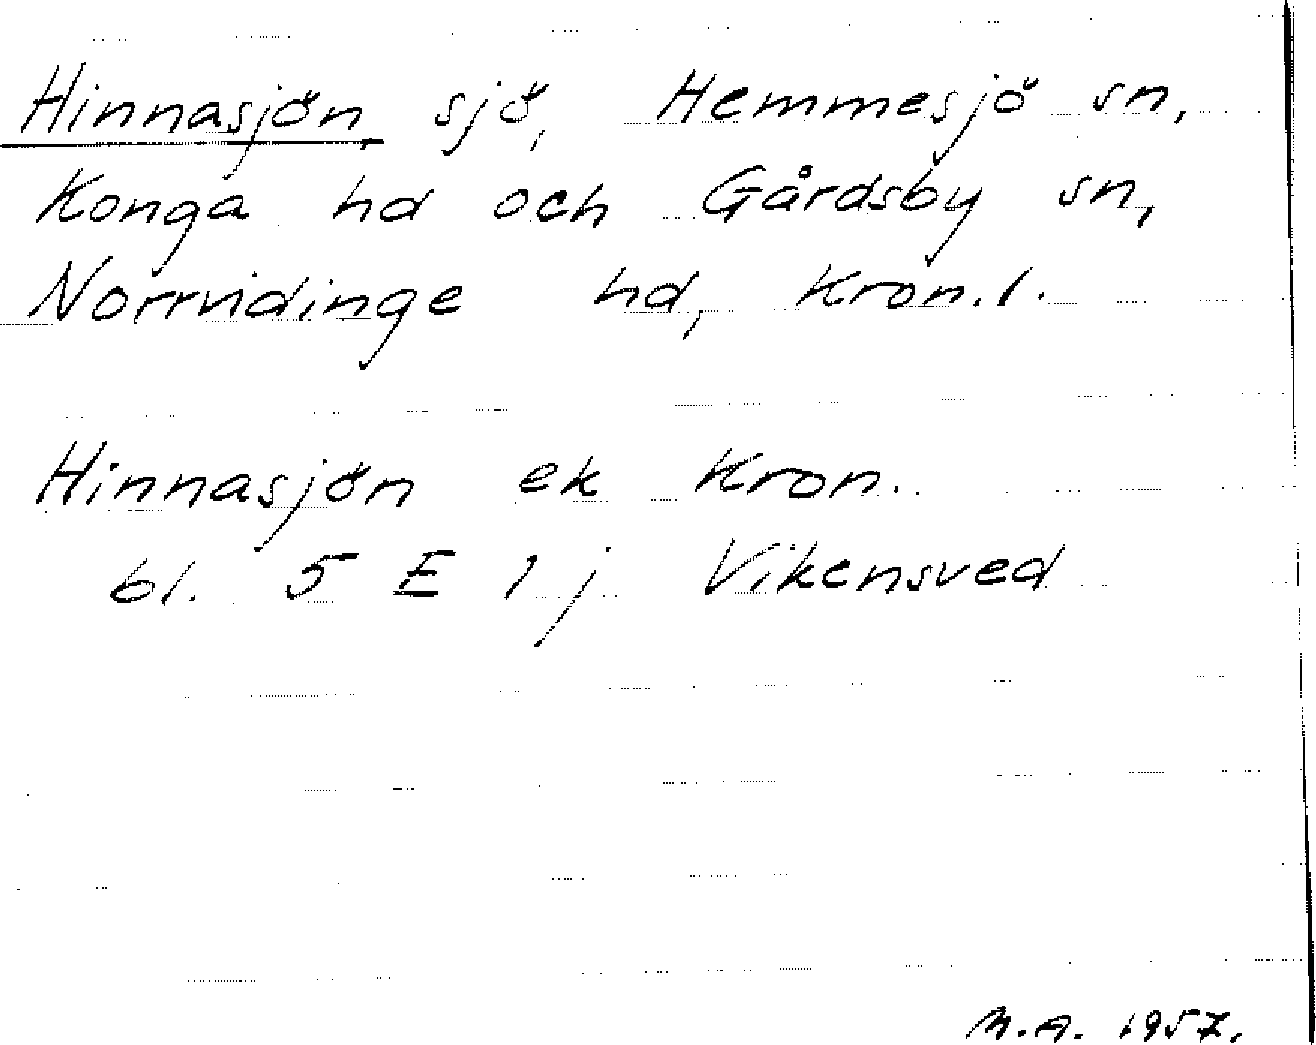 Hinnasjön, sjö, Hemmesjö sn,
Konga hd och Gårdsby sn,
Norrvidinge hd, Kron. l.
Hinnasjön ek Kron.
bl. 5 E 1 j Vikensved
M.A. 1957.